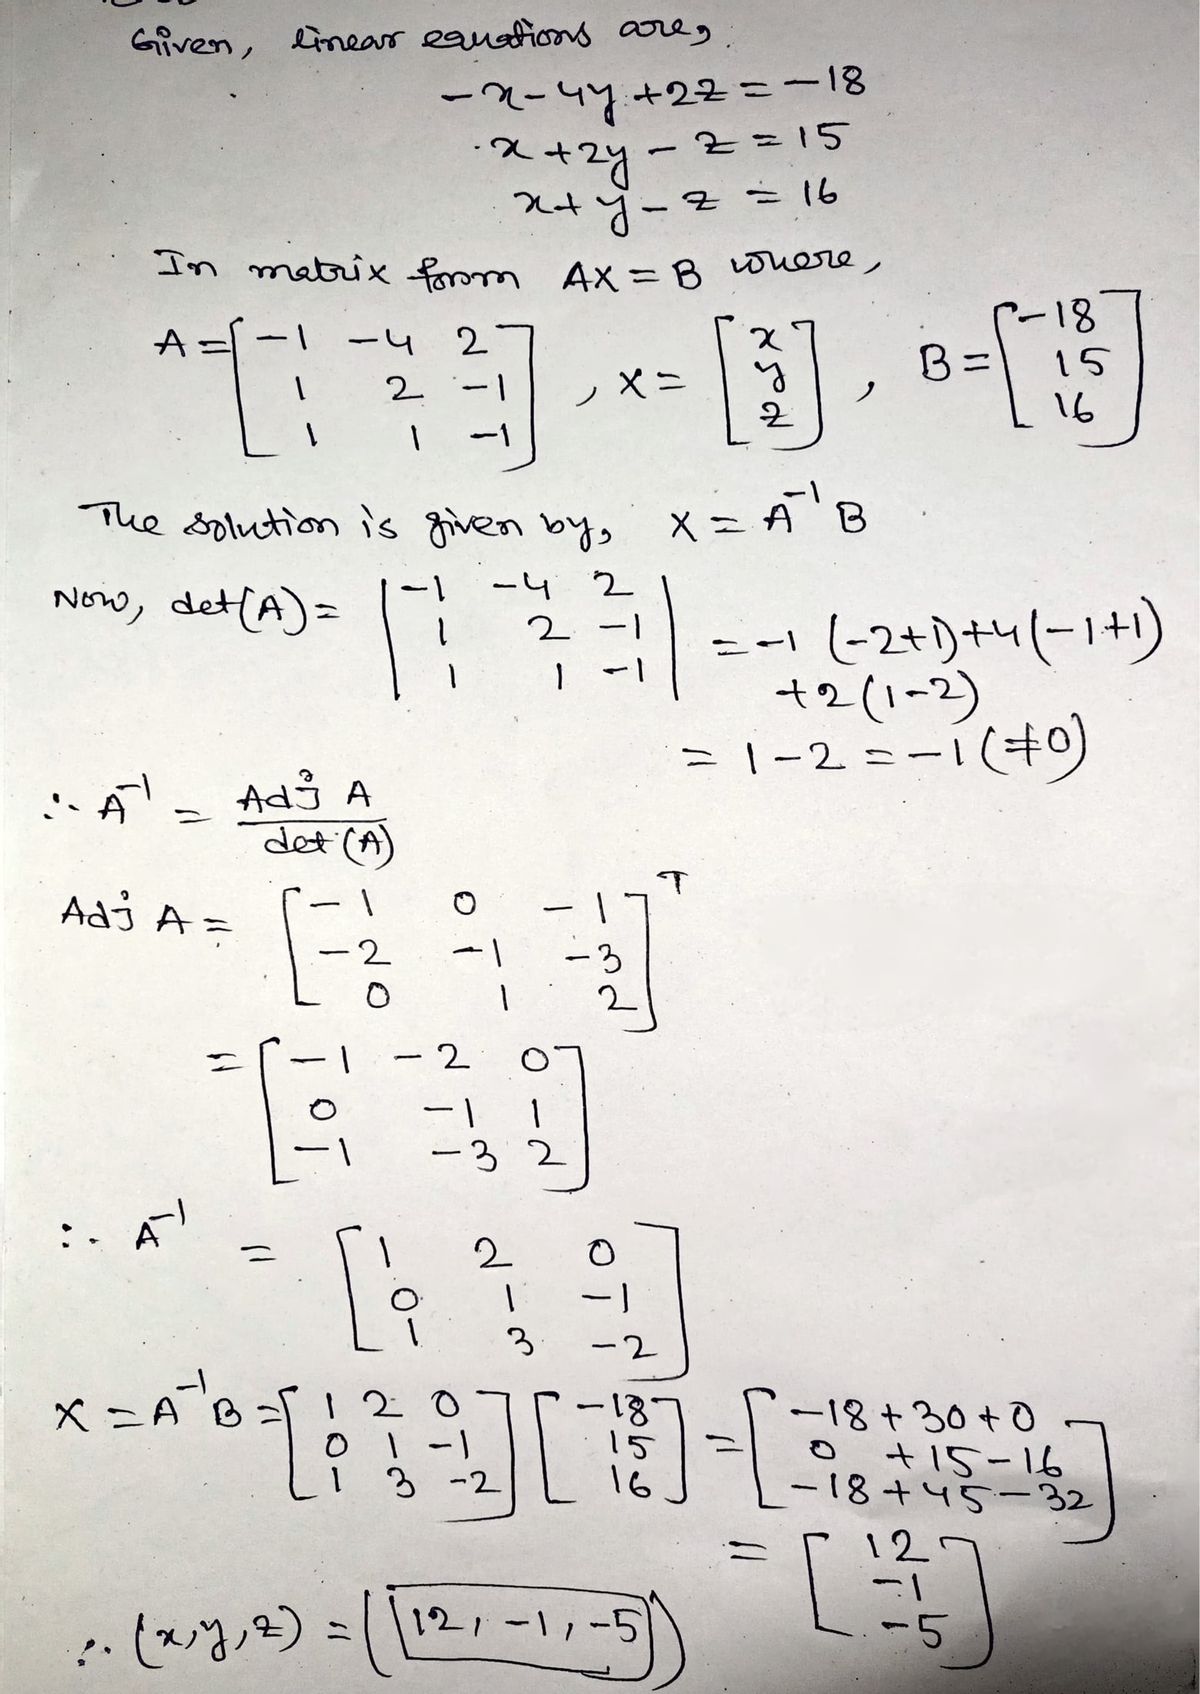 Given, linear equations are,
-x-4y+2z=-18
x+2y-z=15
x+y-z=16
In matrix form AX=B where,
A=[-1 -4 2
1 2 -1
1 1 -1], X=[x
y
z], B=[-18
15
16]
The solution is given by, X=A⁻¹B
Now, det(A)=|-1 -4 2
1 2 -1
1 1 -1| =-1(-2+1)+4(-1+1)
+2(1-2)
=1-2=-1(≠0)
∴ A⁻¹ = Adj A
det(A)
Adj A = [-1 0 -1
-2 -1 -3
0 1 2]ᵀ
=[-1 -2 0
0 -1 1
-1 -3 2]
∴ A⁻¹ = [1 2 0
0 1 -1
1 3 -2]
X=A⁻¹B=[1 2 0
0 1 -1
1 3 -2][-18
15
16]=[-18+30+0
0+15-16
-18+45-32]
=[12
-1
-5]
∴ (x,y,z)=(12,-1,-5)